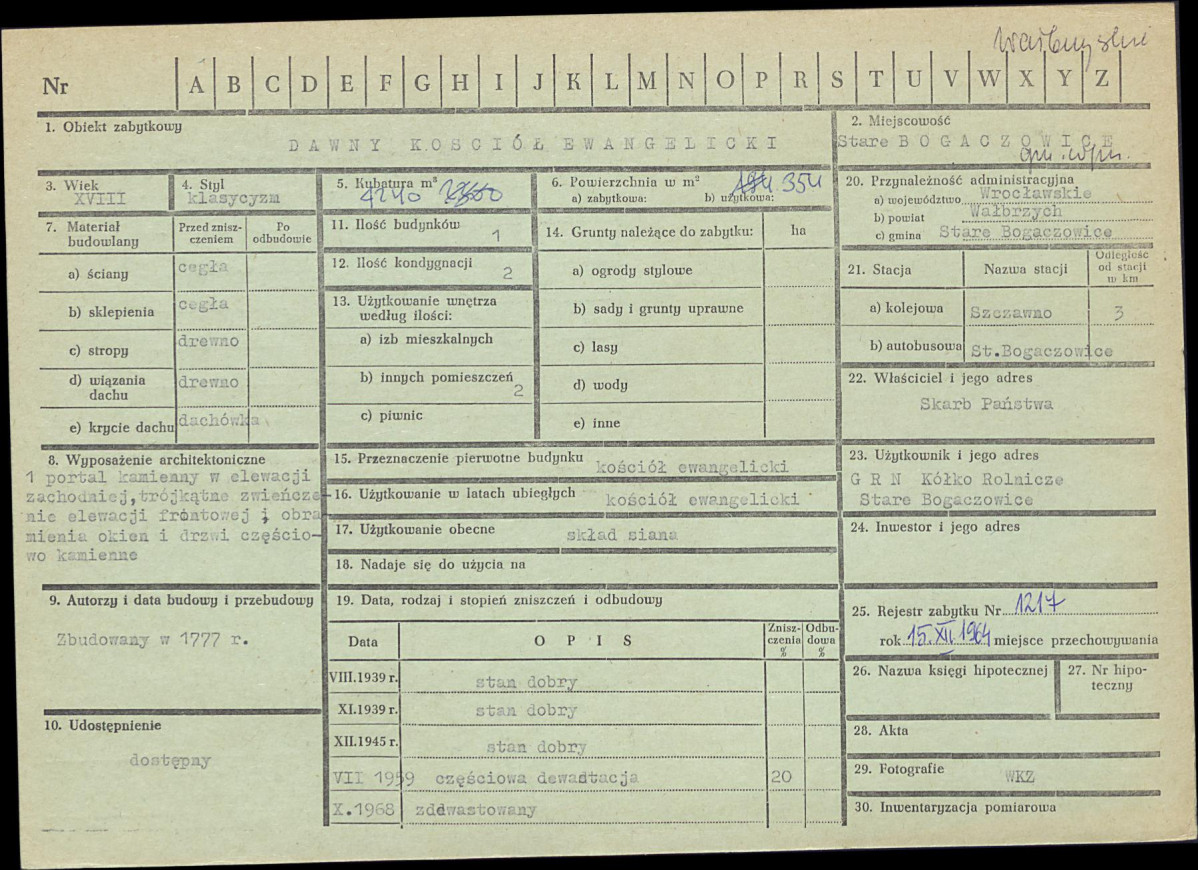 Wałbrzyskie
Nr A B C D E F G H I J K L M N O P R S T U V W X Y Z
1. Obiekt zabytkowy
DAWNY KOSCIÓŁ EWANGELICKI
2. Miejscowość
Stare BOGACZOWICE
3. Wiek
XVIII
4. Styl
klasycyzm
5. Kubatura m³
4240
6. Powierzchnia w m²
a) zabytkowa: b) użytkowa:
354
20. Przynależność administracyjna
a) województwo Wrocławskie
b) powiat Wałbrzych
c) gmina Stare Bogaczowice
7. Materiał budowlany
Przed znisz-
czeniem
Po
odbudowie
a) ściany cegła
b) sklepienia cegła
c) stropy drewno
d) wiązania
dachu drewno
e) krycie dachu dachówka
11. Ilość budynków 1
12. Ilość kondygnacji 2
13. Użytkowanie wnętrza
według ilości:
a) izb mieszkalnych
b) innych pomieszczeń 2
c) piwnic
14. Grunty należące do zabytku: ha
a) ogrody stylowe
b) sady i grunty uprawne
c) lasy
d) wody
e) inne
21. Stacja Nazwa stacji
Odległość
od stacji
w km
a) kolejowa Szczawno 3
b) autobusowa St.Bogaczowice
22. Właściciel i jego adres
Skarb Państwa
8. Wyposażenie architektoniczne
1 portal kamienny w elewacji
zachodniej,trójkątne zwieńcze-
nie elewacji frontowej i obra
mienia okien i drzwi częścio-
wo kamienne
15. Przeznaczenie pierwotne budynku kościół ewangelicki
16. Użytkowanie w latach ubiegłych kościół ewangelicki
17. Użytkowanie obecne skład siana
18. Nadaje się do użycia na
23. Użytkownik i jego adres
G R N Kółko Rolnicze
Stare Bogaczowice
24. Inwestor i jego adres
9. Autorzy i data budowy i przebudowy
Zbudowany w 1777 r.
19. Data, rodzaj i stopień zniszczeń i odbudowy
Data OPIS
Znisz-
czenia
%
Odbu-
dowa
%
VIII.1939 r. stan dobry
XI.1939 r. stan dobry
XII.1945 r. stan dobry
VII 1959 częściowa dewadtacja 20
X.1968 zddwastowany
25. Rejestr zabytku Nr 1217
rok 15.XII.1964 miejsce przechowywania
26. Nazwa księgi hipotecznej
27. Nr hipo-
teczny
10. Udostępnienie
dostępny
28. Akta
29. Fotografie WKZ
30. Inwentaryzacja pomiarowa